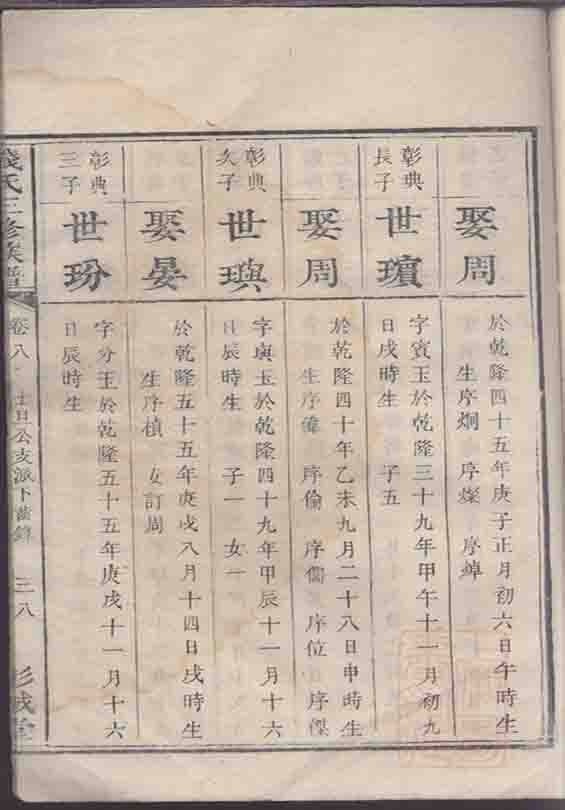 娶周
於乾隆四十五年庚子正月初六日午時生
生序炯 序燦 序焯
彰典
長子
世璸
字賓玉於乾隆三十九年甲午十一月初九
日戌時生 子五
娶周
於乾隆四十年乙未九月二十八日申時生
生序偉 序倫 序儒 序位 序傑
彰典
次子
世璵
字璵玉於乾隆四十九年甲辰十一月十六
日辰時生 子一 女一
娶晏
於乾隆五十五年庚戌八月十四日戌時生
生序楨 女訂周
彰典
三子
世玢
字分玉於乾隆五十五年庚戌十一月十六
日辰時生
氏三修族譜
卷八
公支派下齒錄
三八
彭城堂